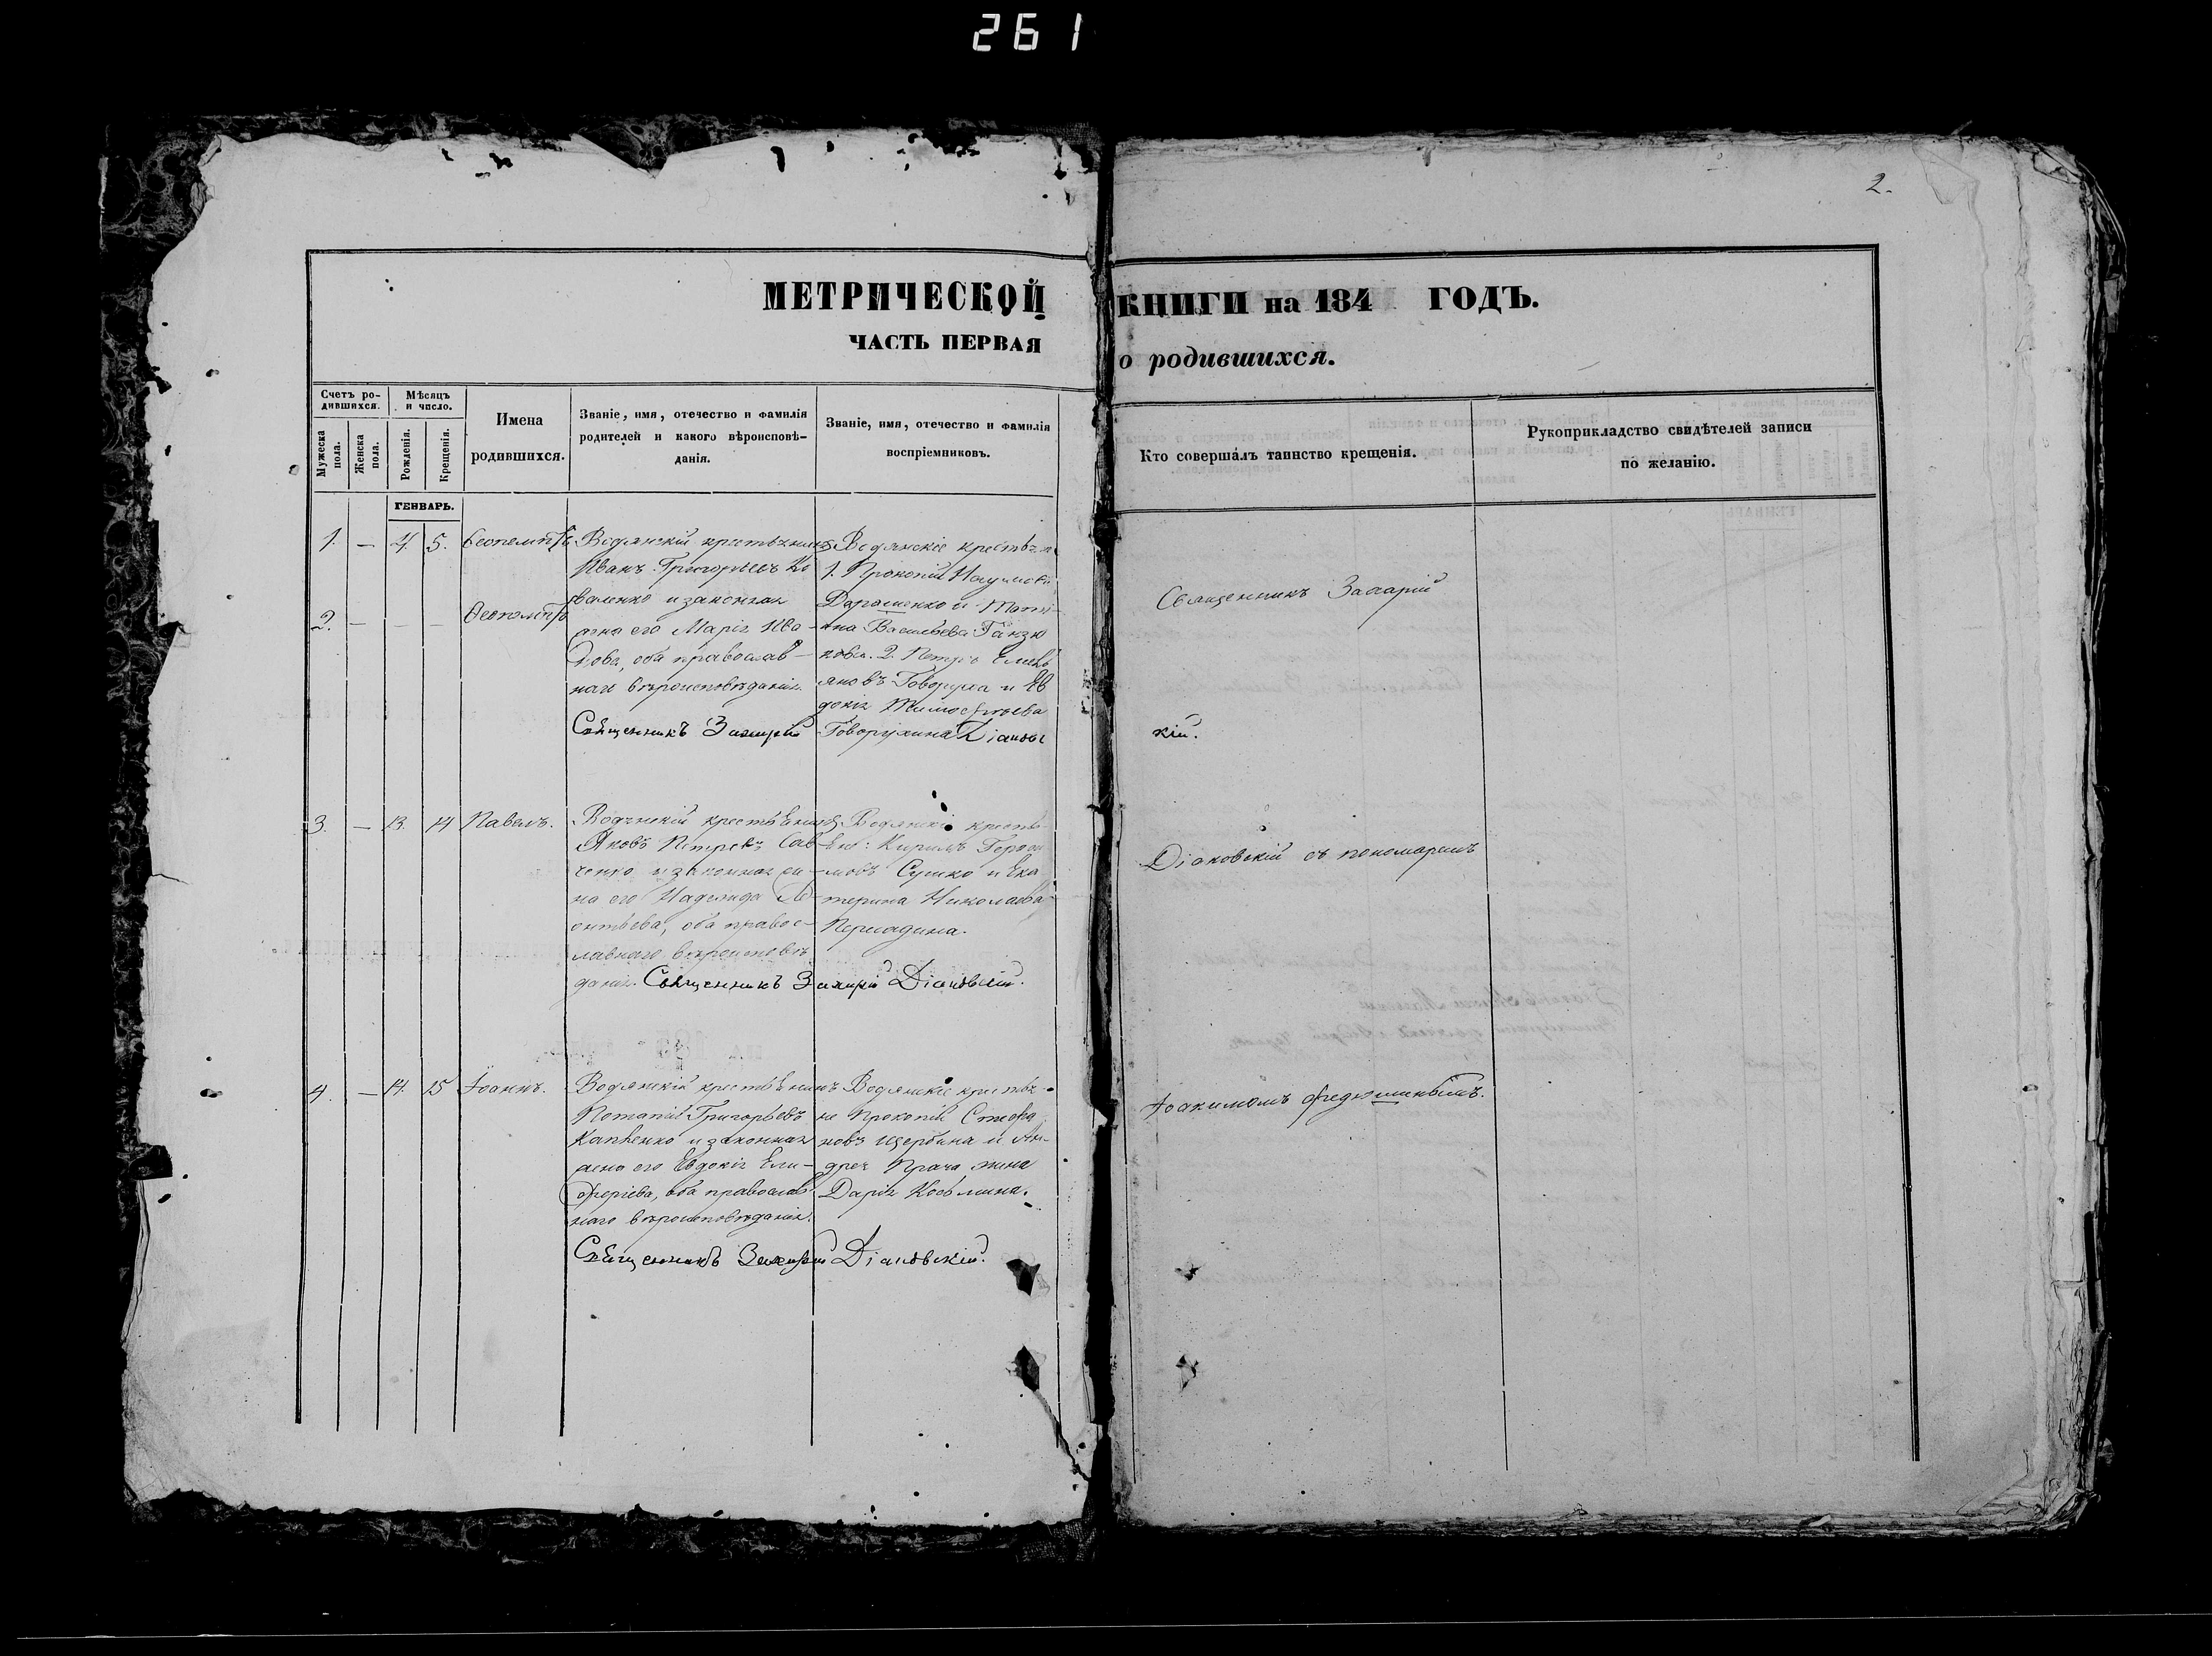 261
2.
МЕТРИЧЕСКОЙ КНИГИ на 184 ГОДЪ.
ЧАСТЬ ПЕРВАЯ о родившихся.
Счетъ ро-
дившихся.
Мужеска
пола.
Женска
пола.
Мѣсяцъ
и число.
Рожденія.
Крещенія.
Имена
родившихся.
Званіе, имя, отечество и фамилія
родителей и какого вѣроисповѣ-
данія.
Званіе, имя, отечество и фамилія
воспріемниковъ.
Кто совершалъ таинство крещенія.
Рукоприкладство свидѣтелей записи
по желанію.
ГЕНВАРЬ.
1. — 4. 5.
Водянскій крестьянинъ
Иванъ Григорьевъ Ко
валенко и законная
жена его Марія Ива-
нова, оба православ-
наго вѣроисповѣданія.
Священникъ Захарій
2. — — —
Водянскіе крестьян
1. Прокопій Наумовъ
Дарошенко и Тати-
яна Васильева Ганзю
кова. 2. Петръ Емель
яновъ Говоруха и Ев
докія Тимофеева
Говорухина Діаков
Священникъ Захарій
кій.
3. — 13. 14 Павелъ.
Водянскій крестьянинъ
Яковъ Петровъ Сав-
ченко и законная же-
на его Надежда Ле-
онтьева, оба правос-
лавнаго вѣроисповѣ
данія. Священникъ Захарій Діаковскій.
Водянскіе крестья-
не: Кирилъ Гераси
мовъ Сушко и Ека
терина Николаева
Діаковскій съ пономаремъ
4. — 14. 15 Іоаннъ.
Водянскій крестьянинъ
Потапій Григорьевъ
и законная
жена его Евдокія Ели-
ферьева, оба православ
наго вѣроисповѣданія.
Священникъ Захарій Діаковскій.
Водянскіе крестья-
не Прокопій Стефа
новъ Щербина и Ан-
дрея Прача жена
Дарія Козьмина.
Іоакимомъ Федюшинымъ.